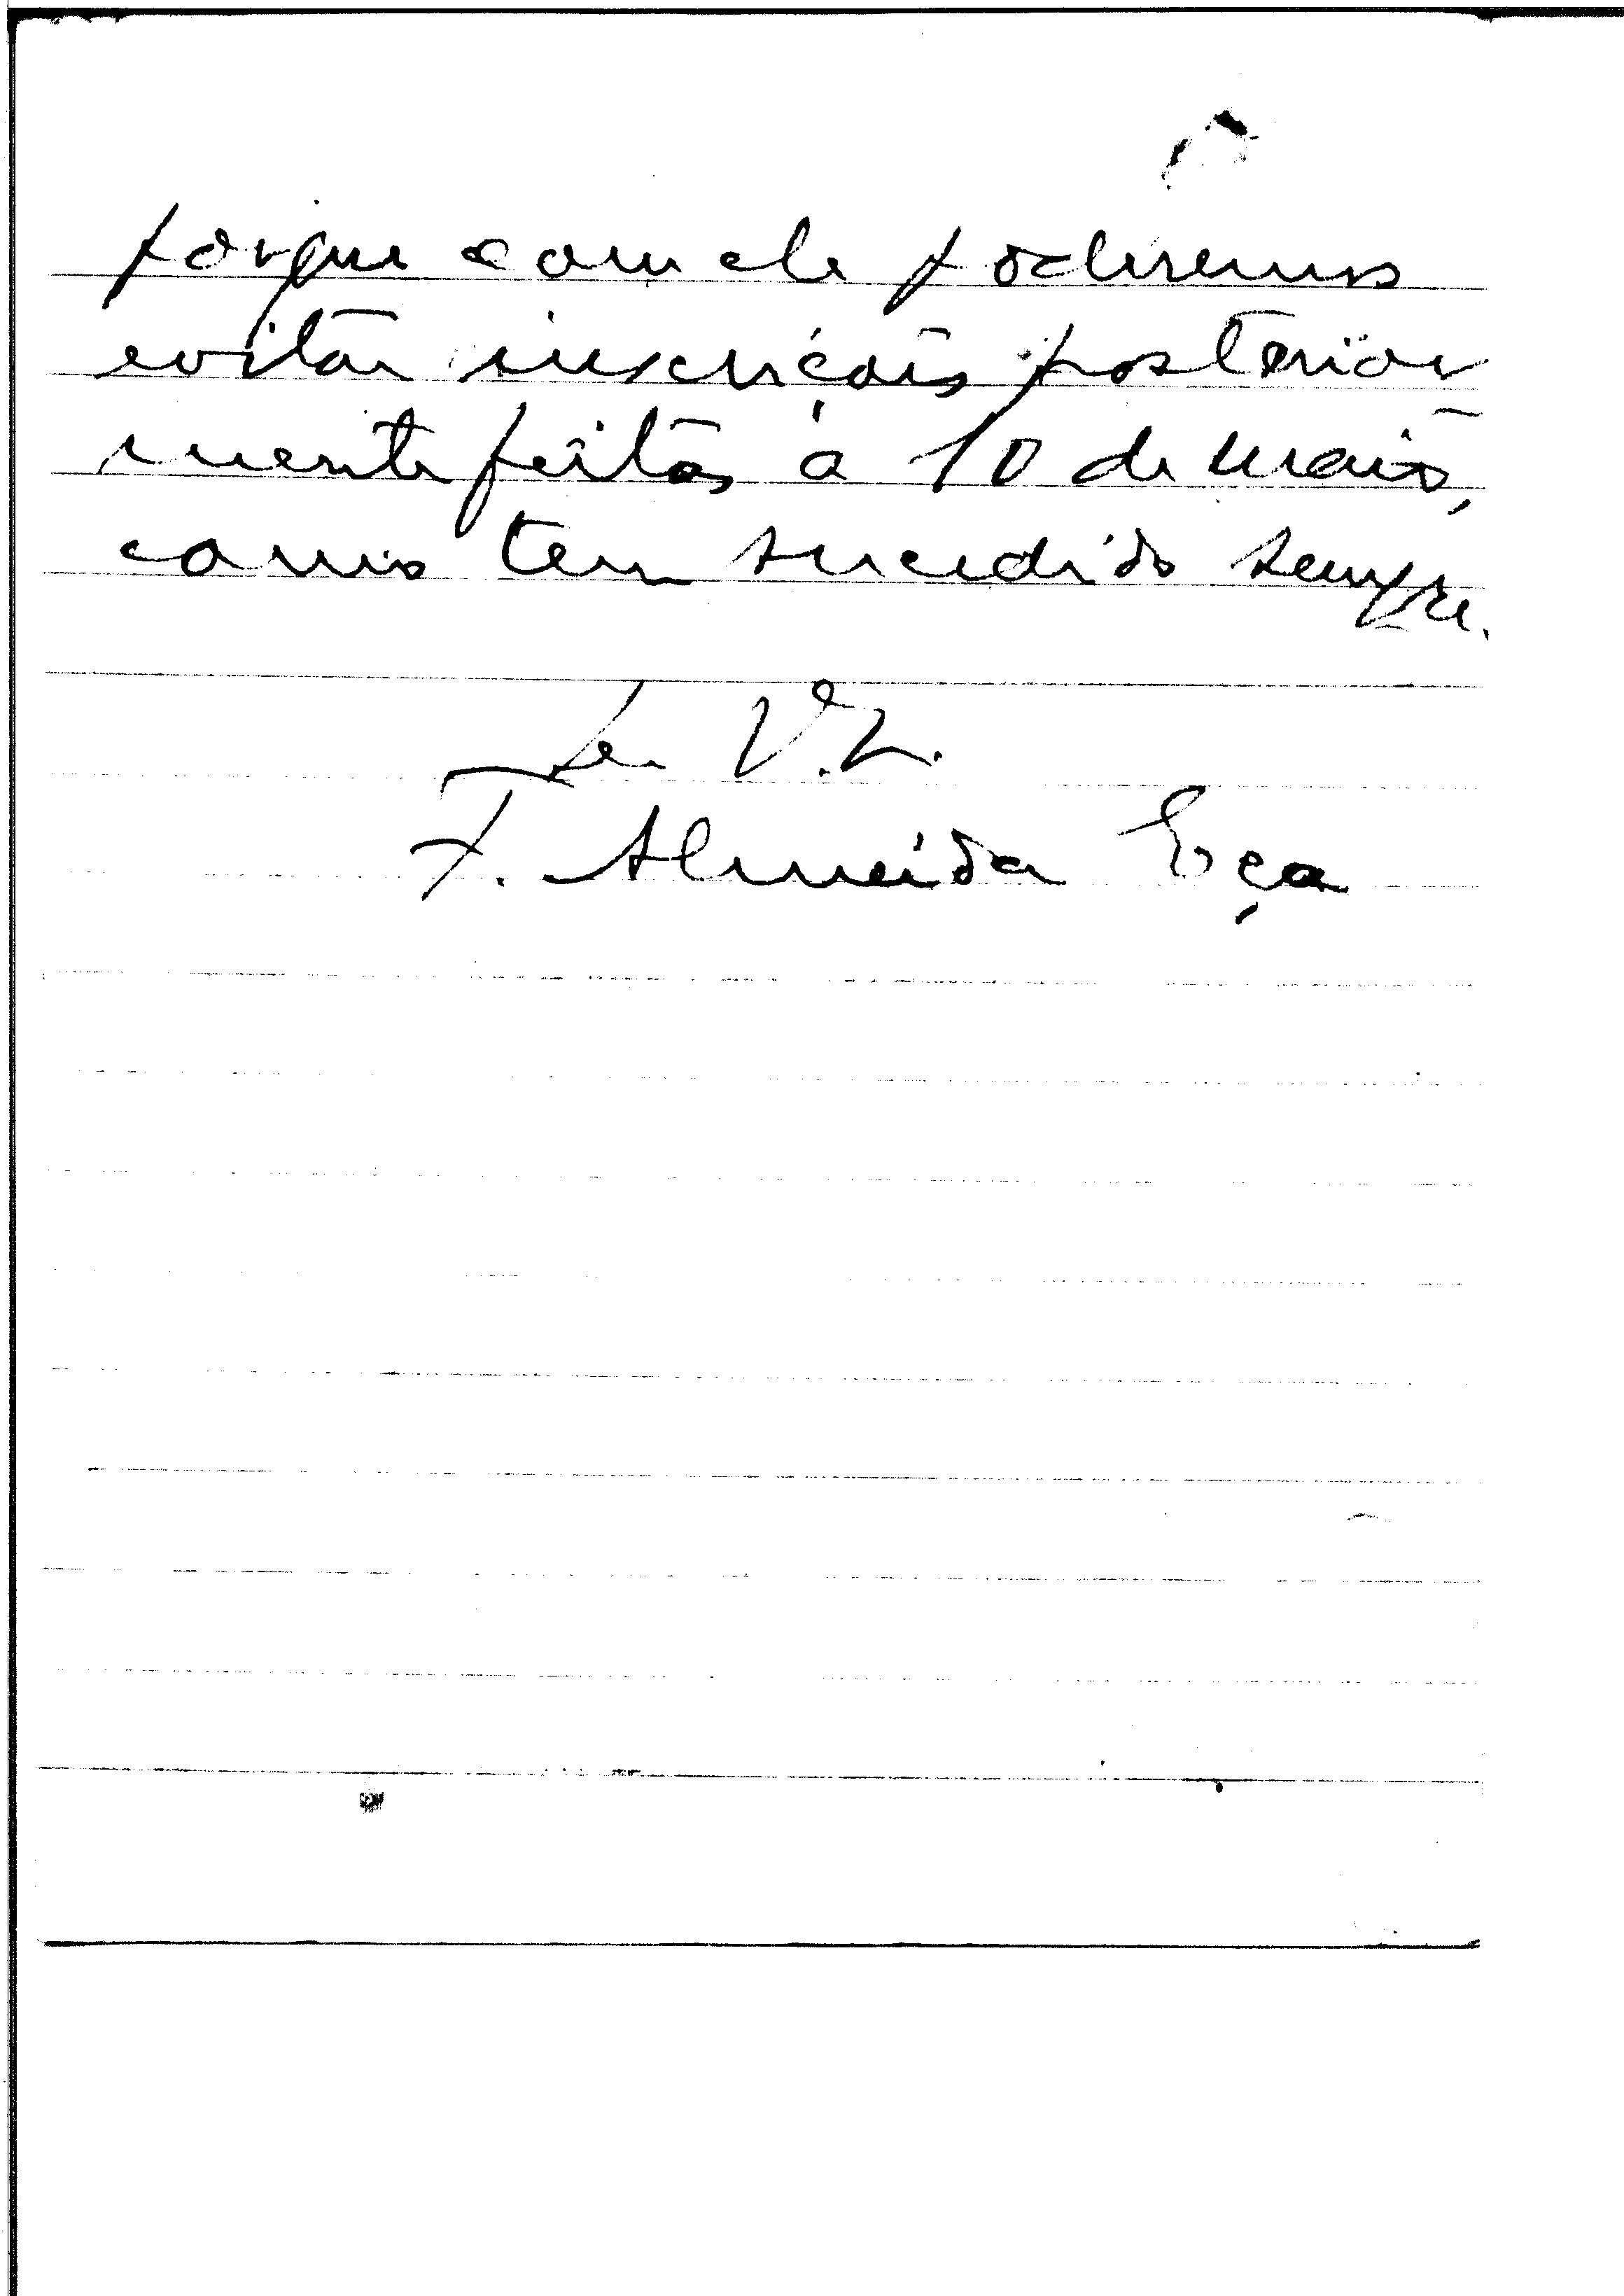 porque com ele poderemos
evitar inscrições posterior
mente feitas a 10 de maio,
como tem sucedido sempre.
De V.
F. Almeida Eça